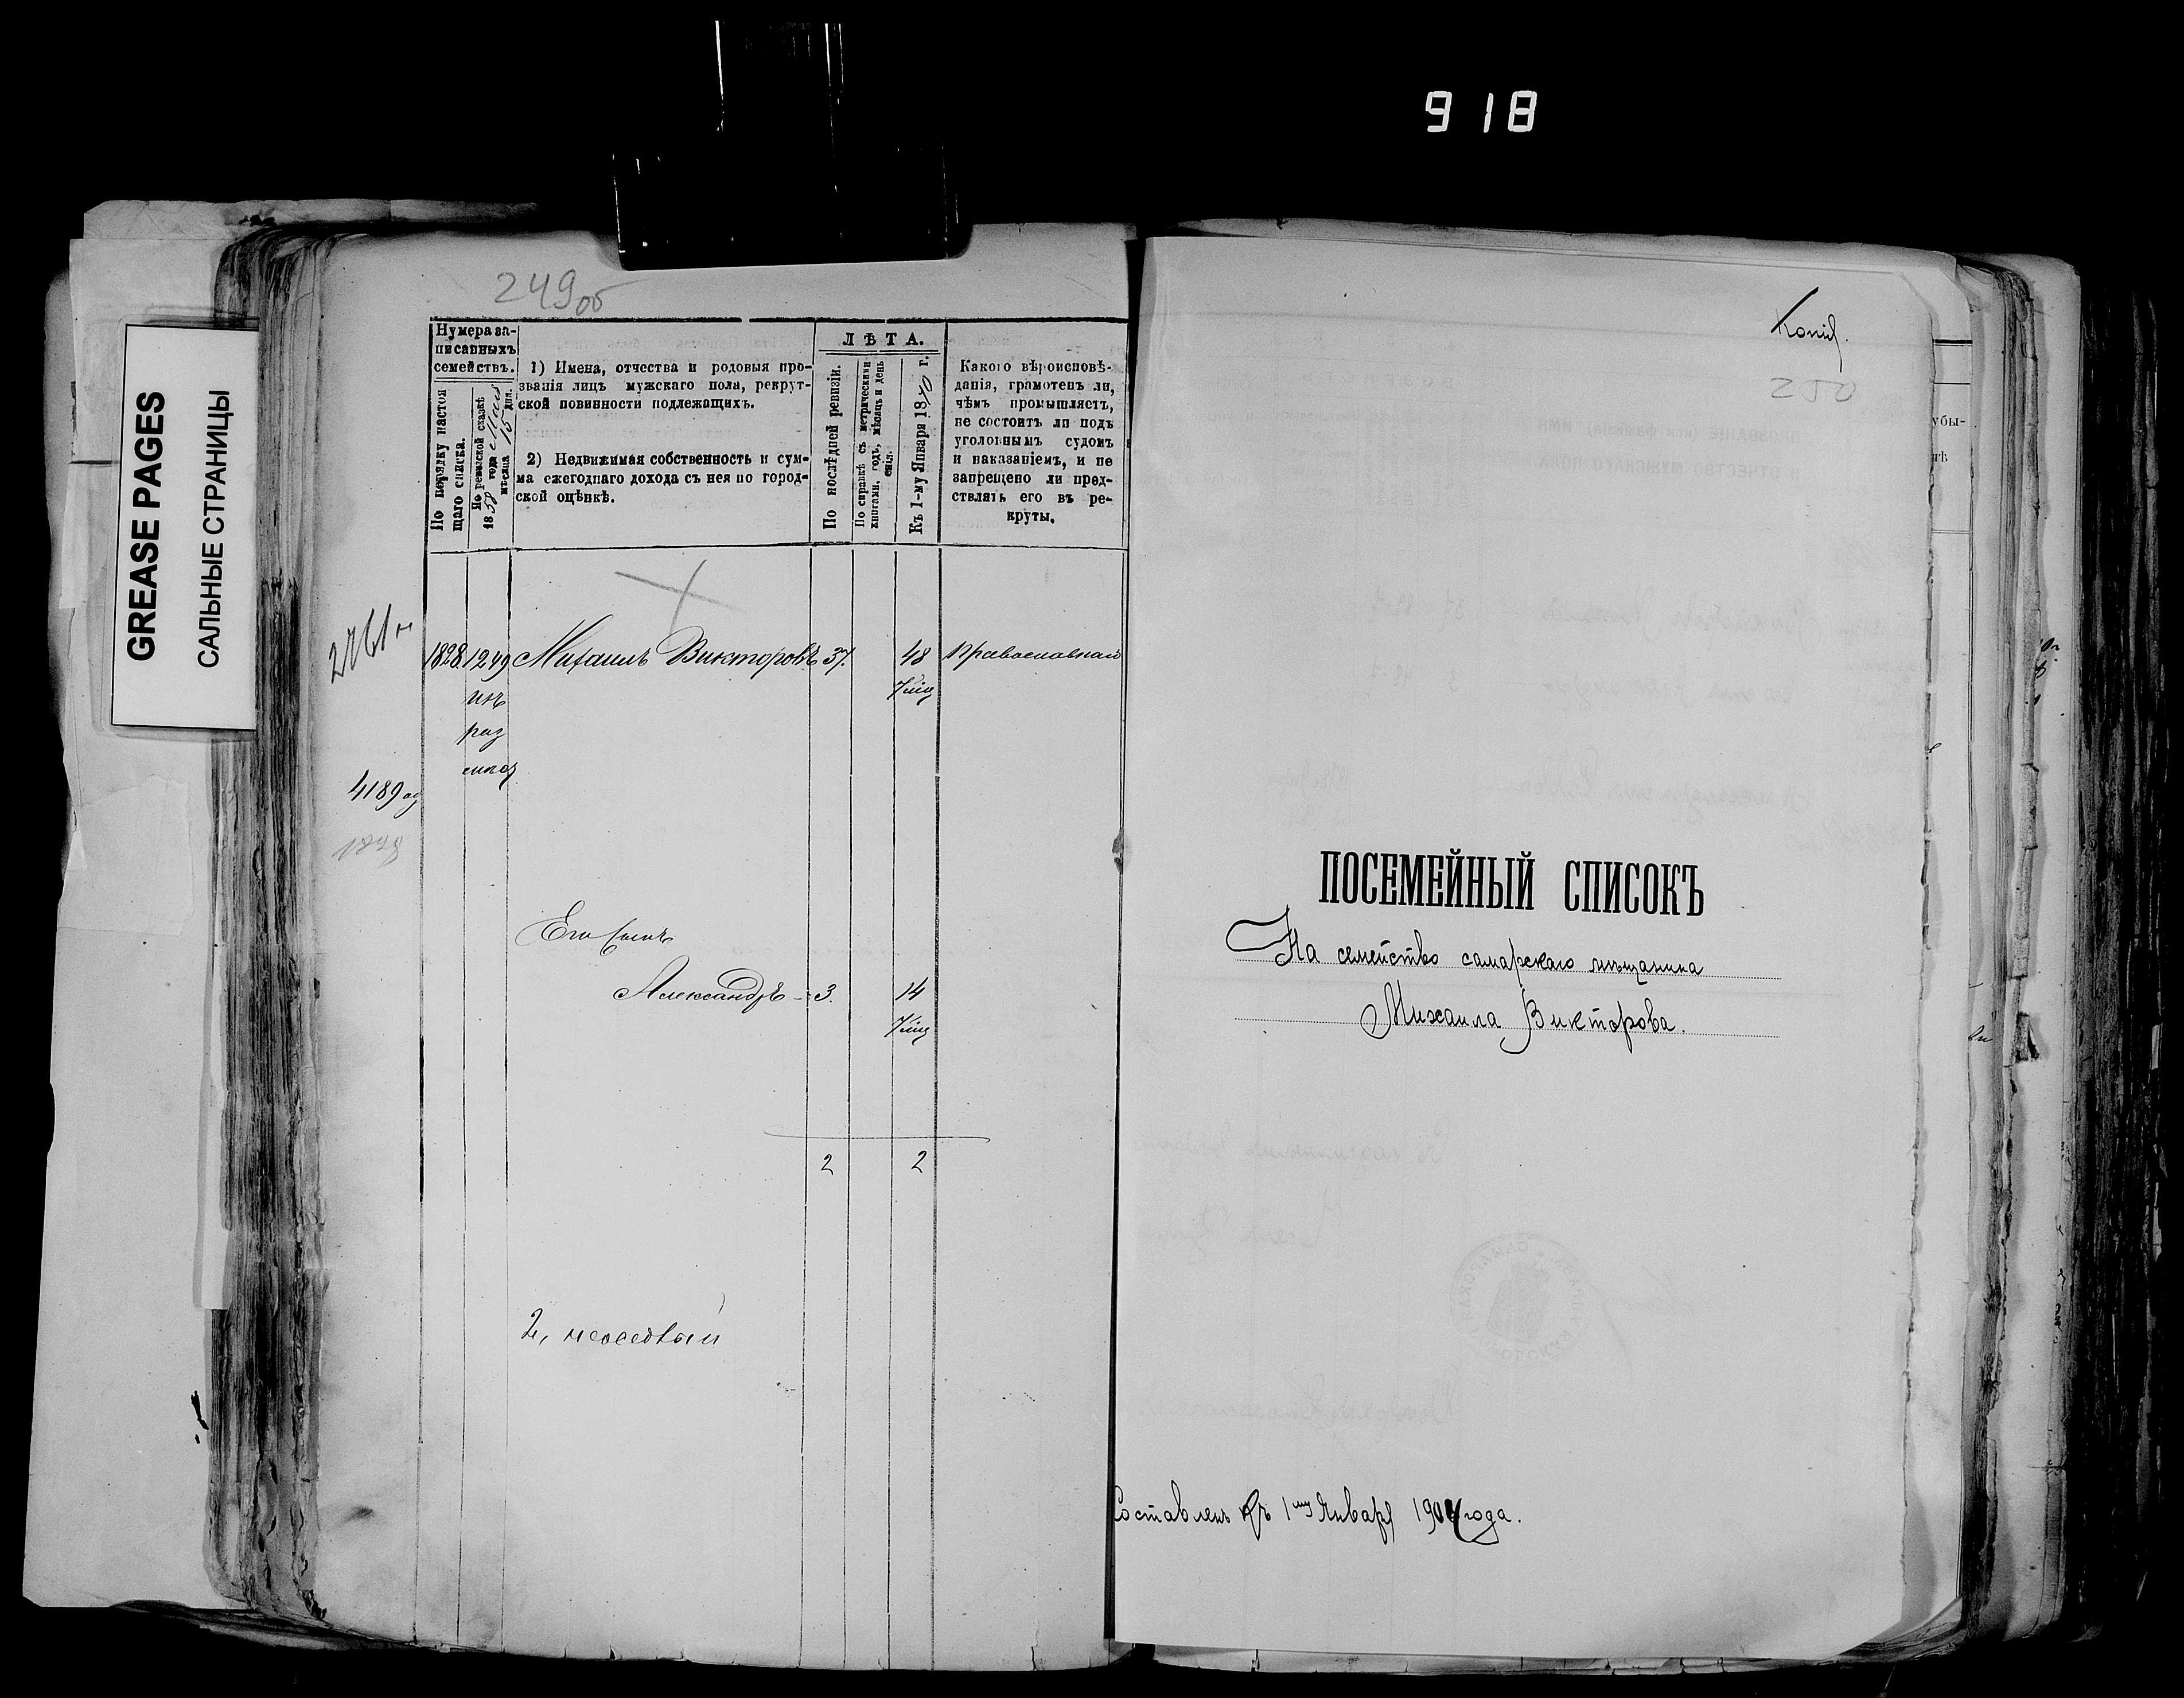 918
GREASE PAGES
САЛЬНЫЕ СТРАНИЦЫ
249об
Нумера за-
писанныхъ
семействъ.
По порядку настоя
щаго списка.
По ревизской сказкѣ
1858 года Мая
мѣсяца 15 дня.
1) Имена, отчества и родовыя про-
званія лицъ мужскаго пола, рекрут-
ской повинности подлежащихъ.
2) Недвижимая собственность и сум-
ма ежегоднаго дохода съ нея по город-
ской оцѣнкѣ.
ЛѢТА.
По послѣдней ревизіи.
По справкѣ съ метрическими
книгами, годъ, мѣсяцъ и день
Къ 1-му Января 1870 г.
Какого вѣроисповѣ-
данія, грамотенъ ли,
чѣмъ промышляетъ,
не состоитъ ли подъ
уголовнымъ судомъ
и наказаніемъ, и не
запрещено ли пред-
ствлять его въ ре-
круты.
1828 1249 Михаилъ Викторовъ 37. 48 православный
4189
1828
Его сынъ
Александръ - 3. 14
2 2
2, неоседлый
Копія.
250
ПОСЕМЕЙНЫЙ СПИСОКЪ
На семейство самарскаго мѣщанина
Михаила Викторова.
Составленъ къ 1му Января 1904 года.
убы-